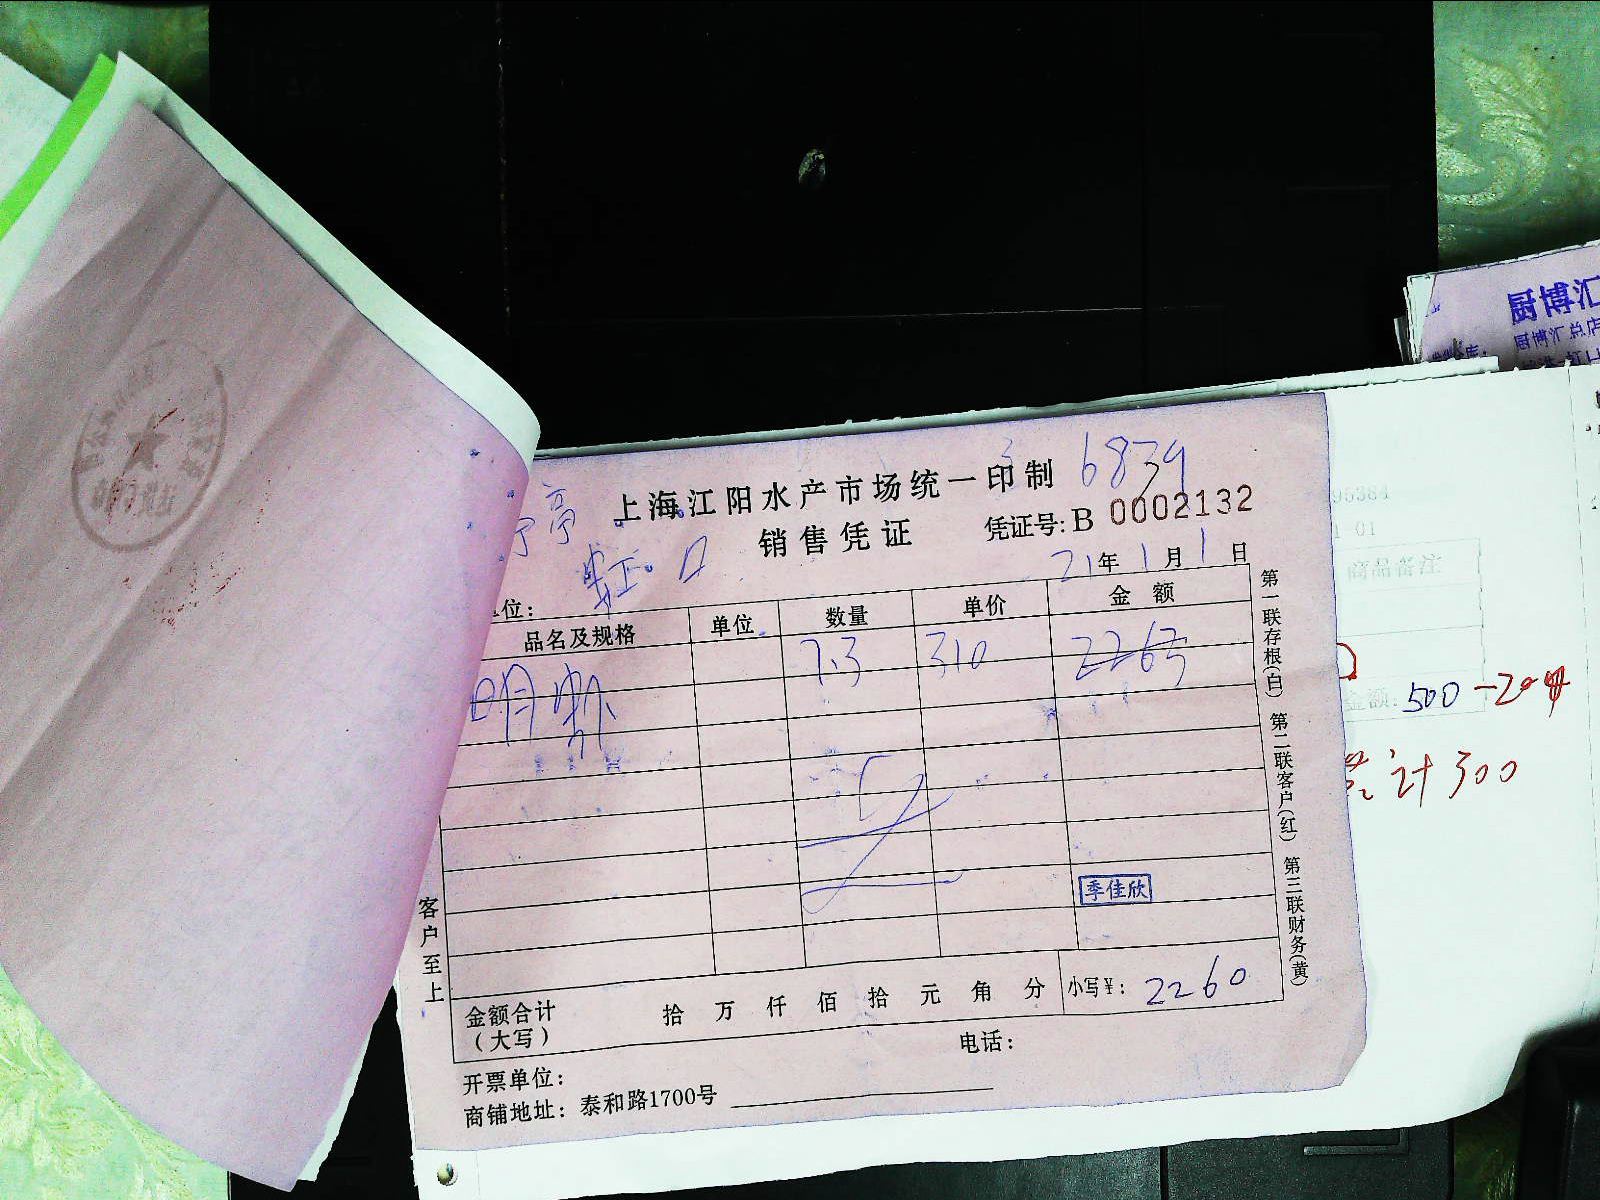 厨博汇
厨博汇总店
6839
上海江阳水产市场统一印制
销售凭证
凭证号: B 0002132
亭
虹口
21年1月1日
位:
品名及规格 单位 数量 单价 金额
明虾 7.3 310 2263
季佳欣
金额合计
(大写)
拾 万 仟 佰 拾 元 角 分 小写¥: 2260
电话:
开票单位:
商铺地址: 泰和路1700号
客户至上
第一联存根(白) 第二联客户(红) 第三联财务(黄)
商品备注
金额: 500-200
总计300